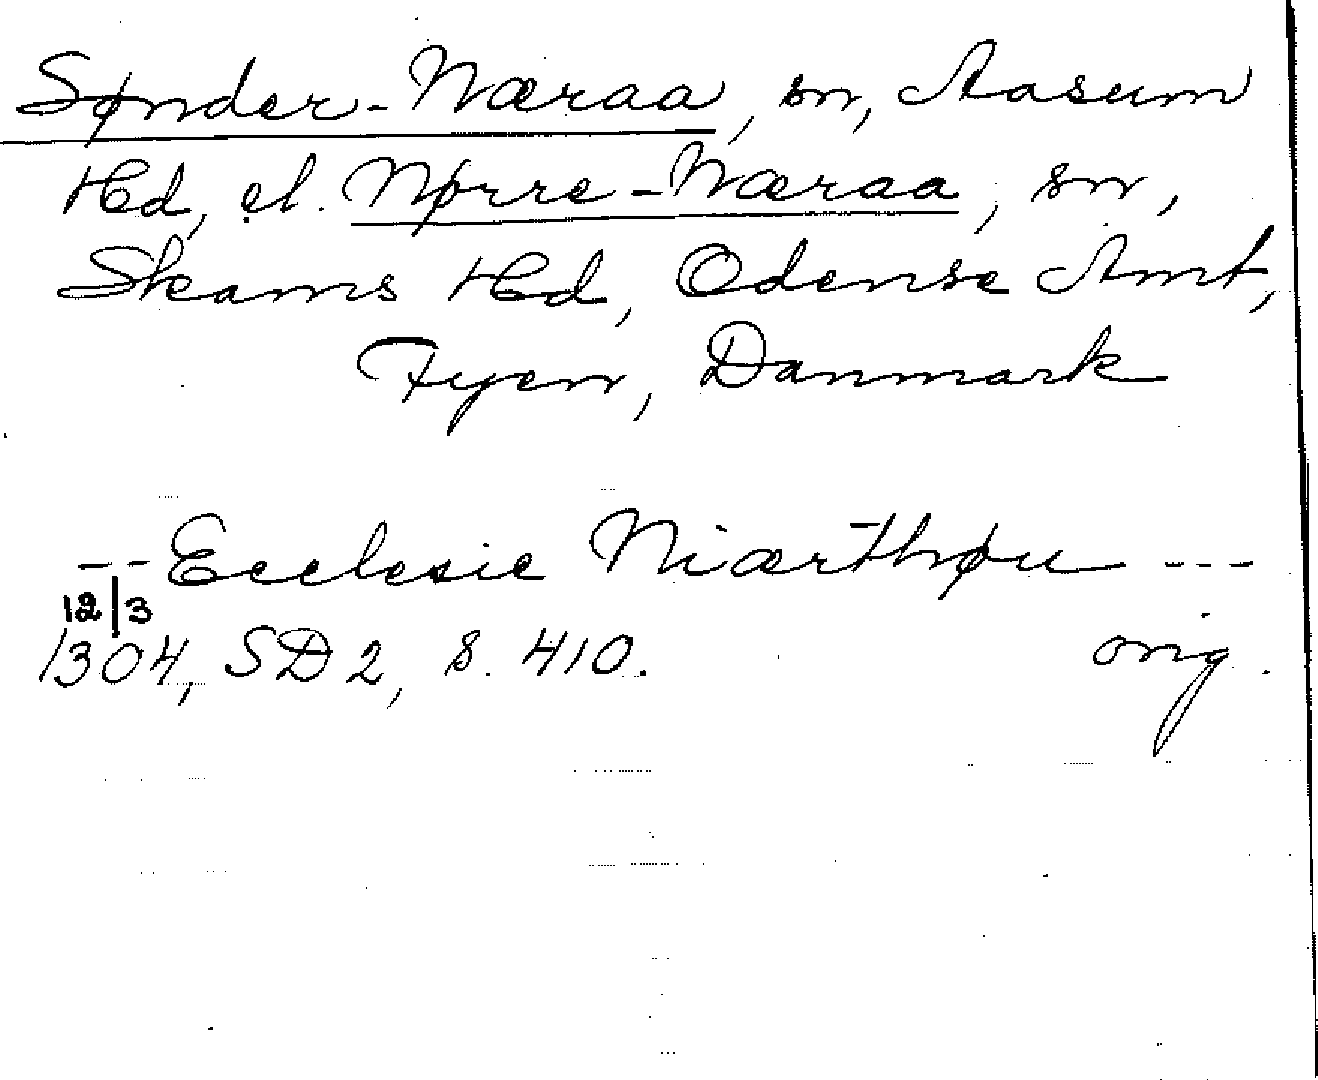 Sønder-Næraa, sn, Aasum
Hd, el. Nørre-Næraa, sn,
Skams Hd, Odense Amt,
Fyen, Danmark
-- Ecclesie Niærthøu ---
12/3
1304, SD 2, s. 410. orig.